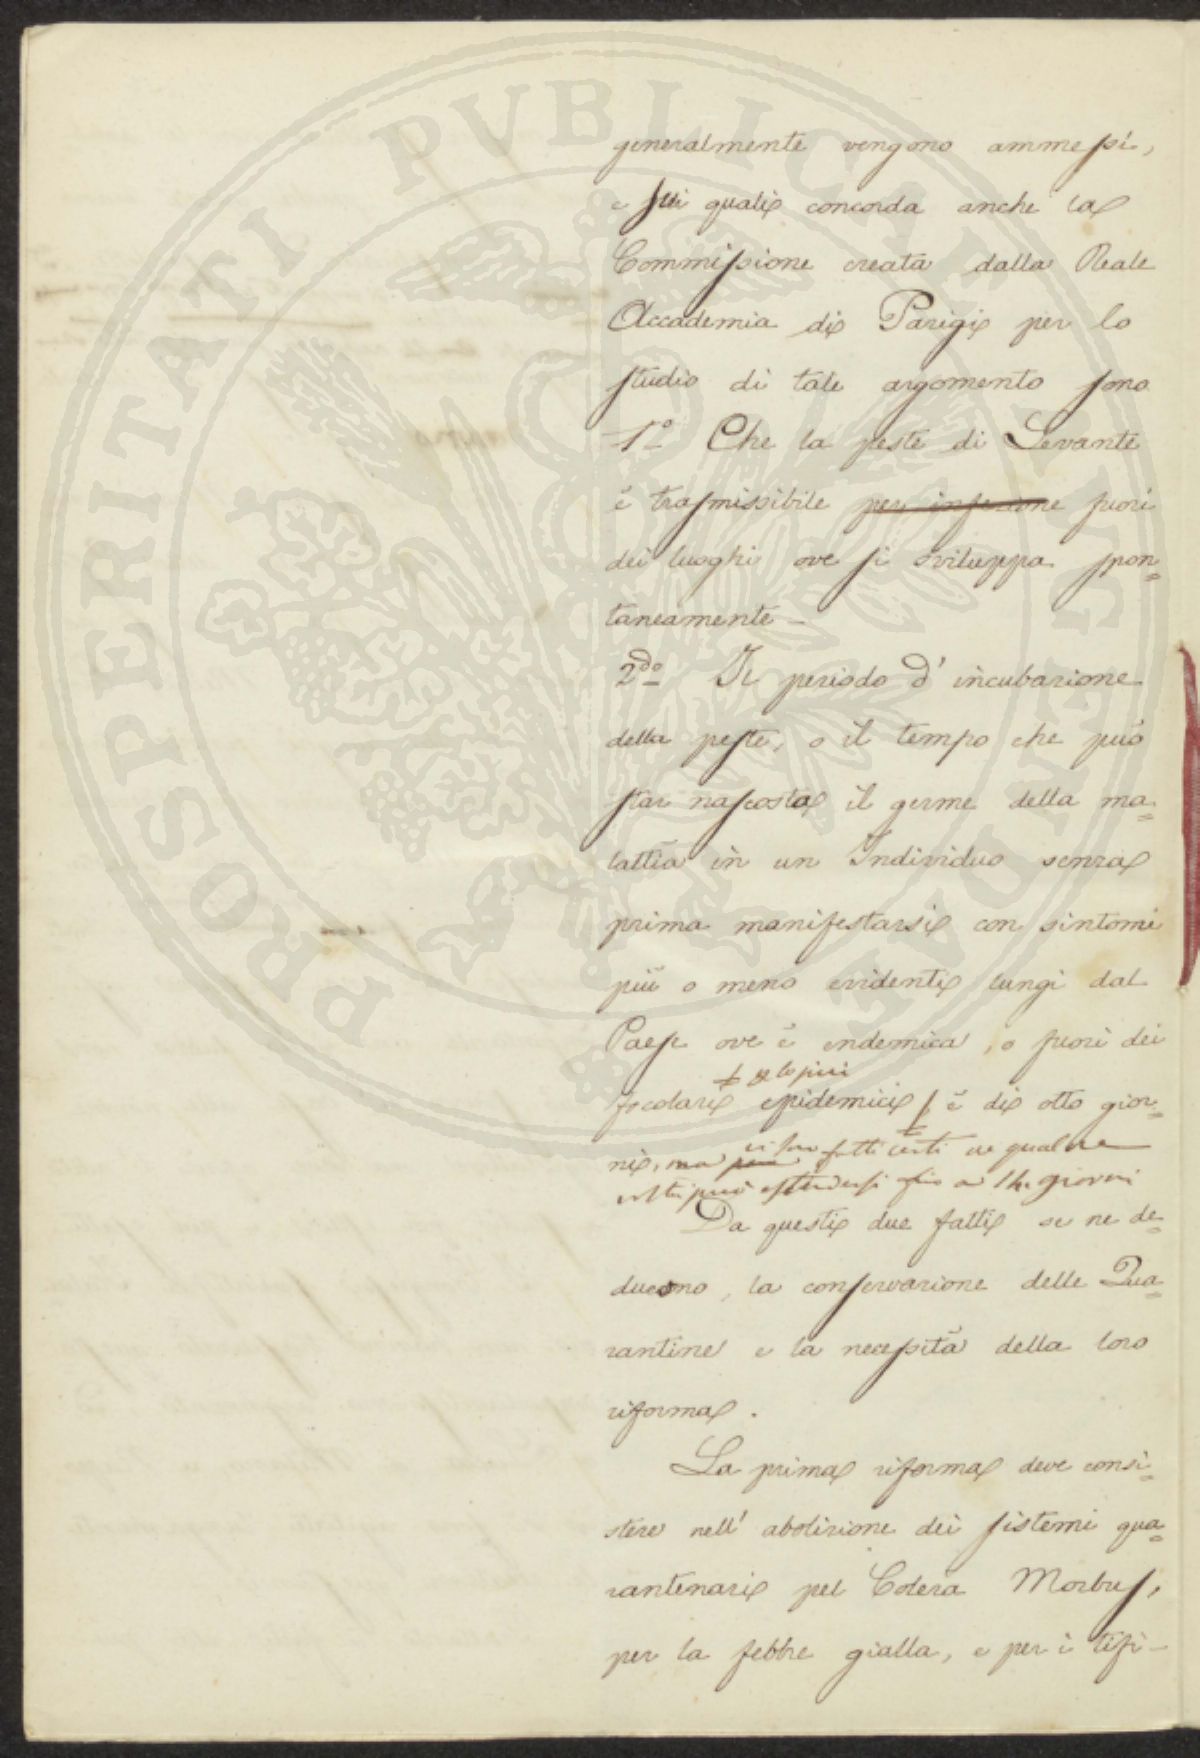 generalmente vengono ammessi,
e sui quali concorda anche la
Commissione creata dalla Reale
Accademia di Parigi per lo
studio di tale argomento sono
1º Che la peste di Levante
è trasmissibile per infezione fuori
dei luoghi ove si sviluppa spon=
taneamente —
2do Il periodo d'incubazione
della peste, o il tempo che può
star nascosta il germe della ma=
lattia in un Individuo senza
prima manifestarsi con sintomi
più o meno evidenti lungi dal
Paese ove è endemica, o fuori dei
il più
focolari epidemici è di otto gior=
ni, ma fatti certi qualche
può estendersi fino a 14 giorni
Da questi due fatti se ne de=
ducono, la conservazione delle Qua=
rantine e la necessità della loro
riforma.
La prima riforma deve consi=
stere nell'abolizione dei sistemi qua=
rantenari pel Colera Morbus,
per la febbre gialla, e per i tifi —
PROSPERITATI PVBLICAE AVGENDAE